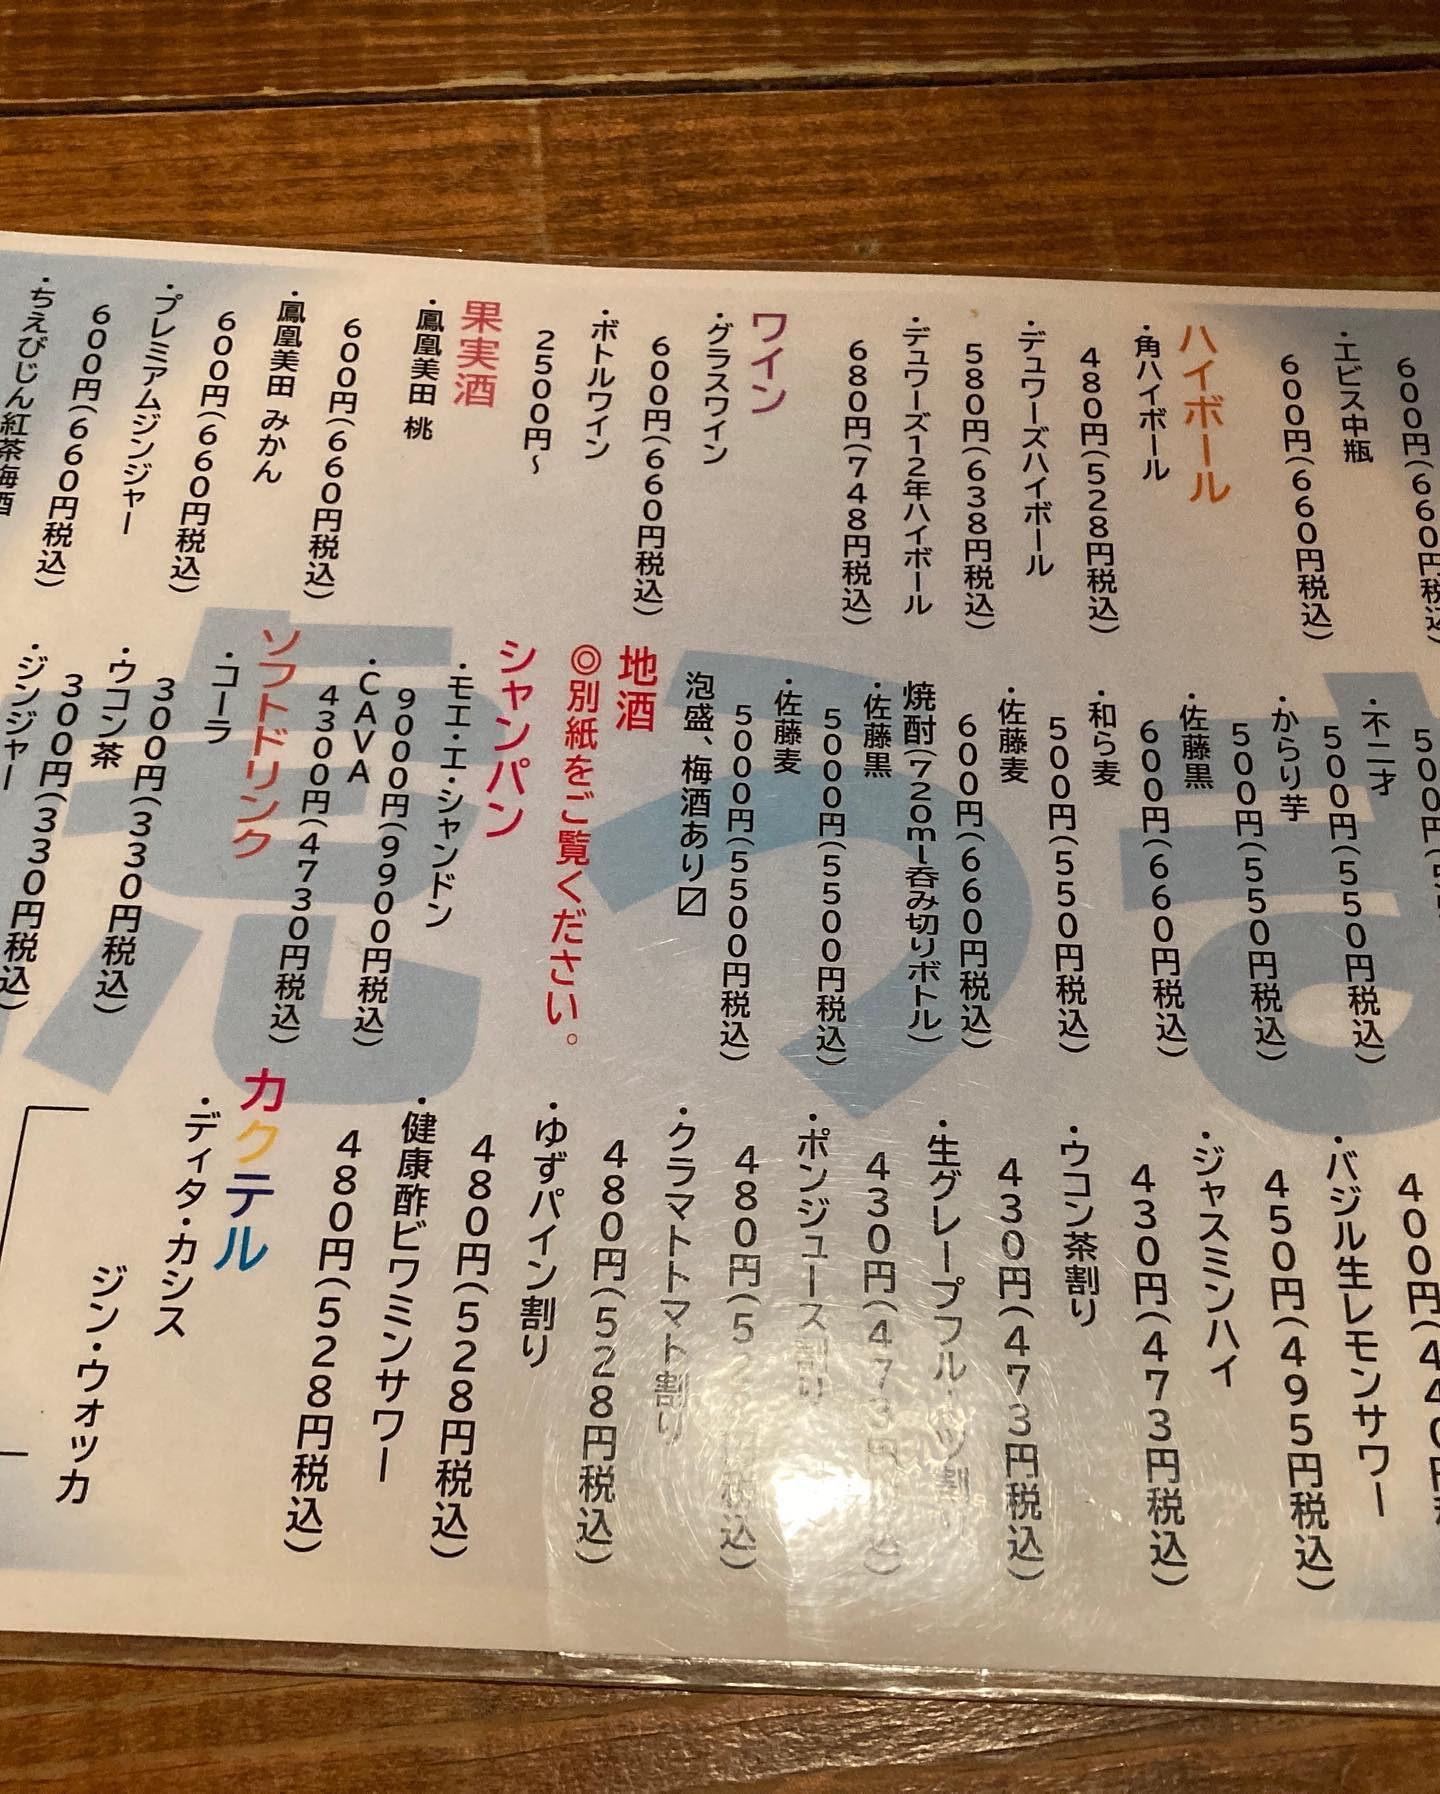 600円(660円税込)
・エビス中瓶
600円(660円税込)
ハイボール
・角ハイボール
480円(528円税込)
・デュワーズハイボール
580円(638円税込)
・デュワーズ12年ハイボール
680円(748円税込)
ワイン
・グラスワイン
600円(660円税込)
・ボトルワイン
2500円~
果実酒
・鳳凰美田 桃
600円(660円税込)
・鳳凰美田 みかん
600円(660円税込)
・プレミアムジンジャー
600円(660円税込)
・ちえびじん紅茶梅酒
・不二才
500円(550円税込)
・からり芋
500円(550円税込)
・佐藤黒
600円(660円税込)
・和ら麦
500円(550円税込)
・佐藤麦
600円(660円税込)
焼酎(720ml呑み切りボトル)
・佐藤黒
5000円(5500円税込)
・佐藤麦
5000円(5500円税込)
泡盛、梅酒あり〼
地酒
◎別紙をご覧ください。
シャンパン
・モエ・エ・シャンドン
9000円(9900円税込)
・CAVA
4300円(4730円税込)
ソフトドリンク
・コーラ
300円(330円税込)
・ウコン茶
300円(330円税込)
・ジンジャー
・バジル生レモンサワー
450円(495円税込)
・ジャスミンハイ
430円(473円税込)
・ウコン茶割り
430円(473円税込)
・生グレープフルーツ割り
430円(473円税込)
・ポンジュース割り
480円(5
税込)
・クラマトトマト割り
480円(528円税込)
・ゆずパイン割り
480円(528円税込)
・健康酢ビワミンサワー
480円(528円税込)
カクテル
・ディタ・カシス
ジン・ウォッカ